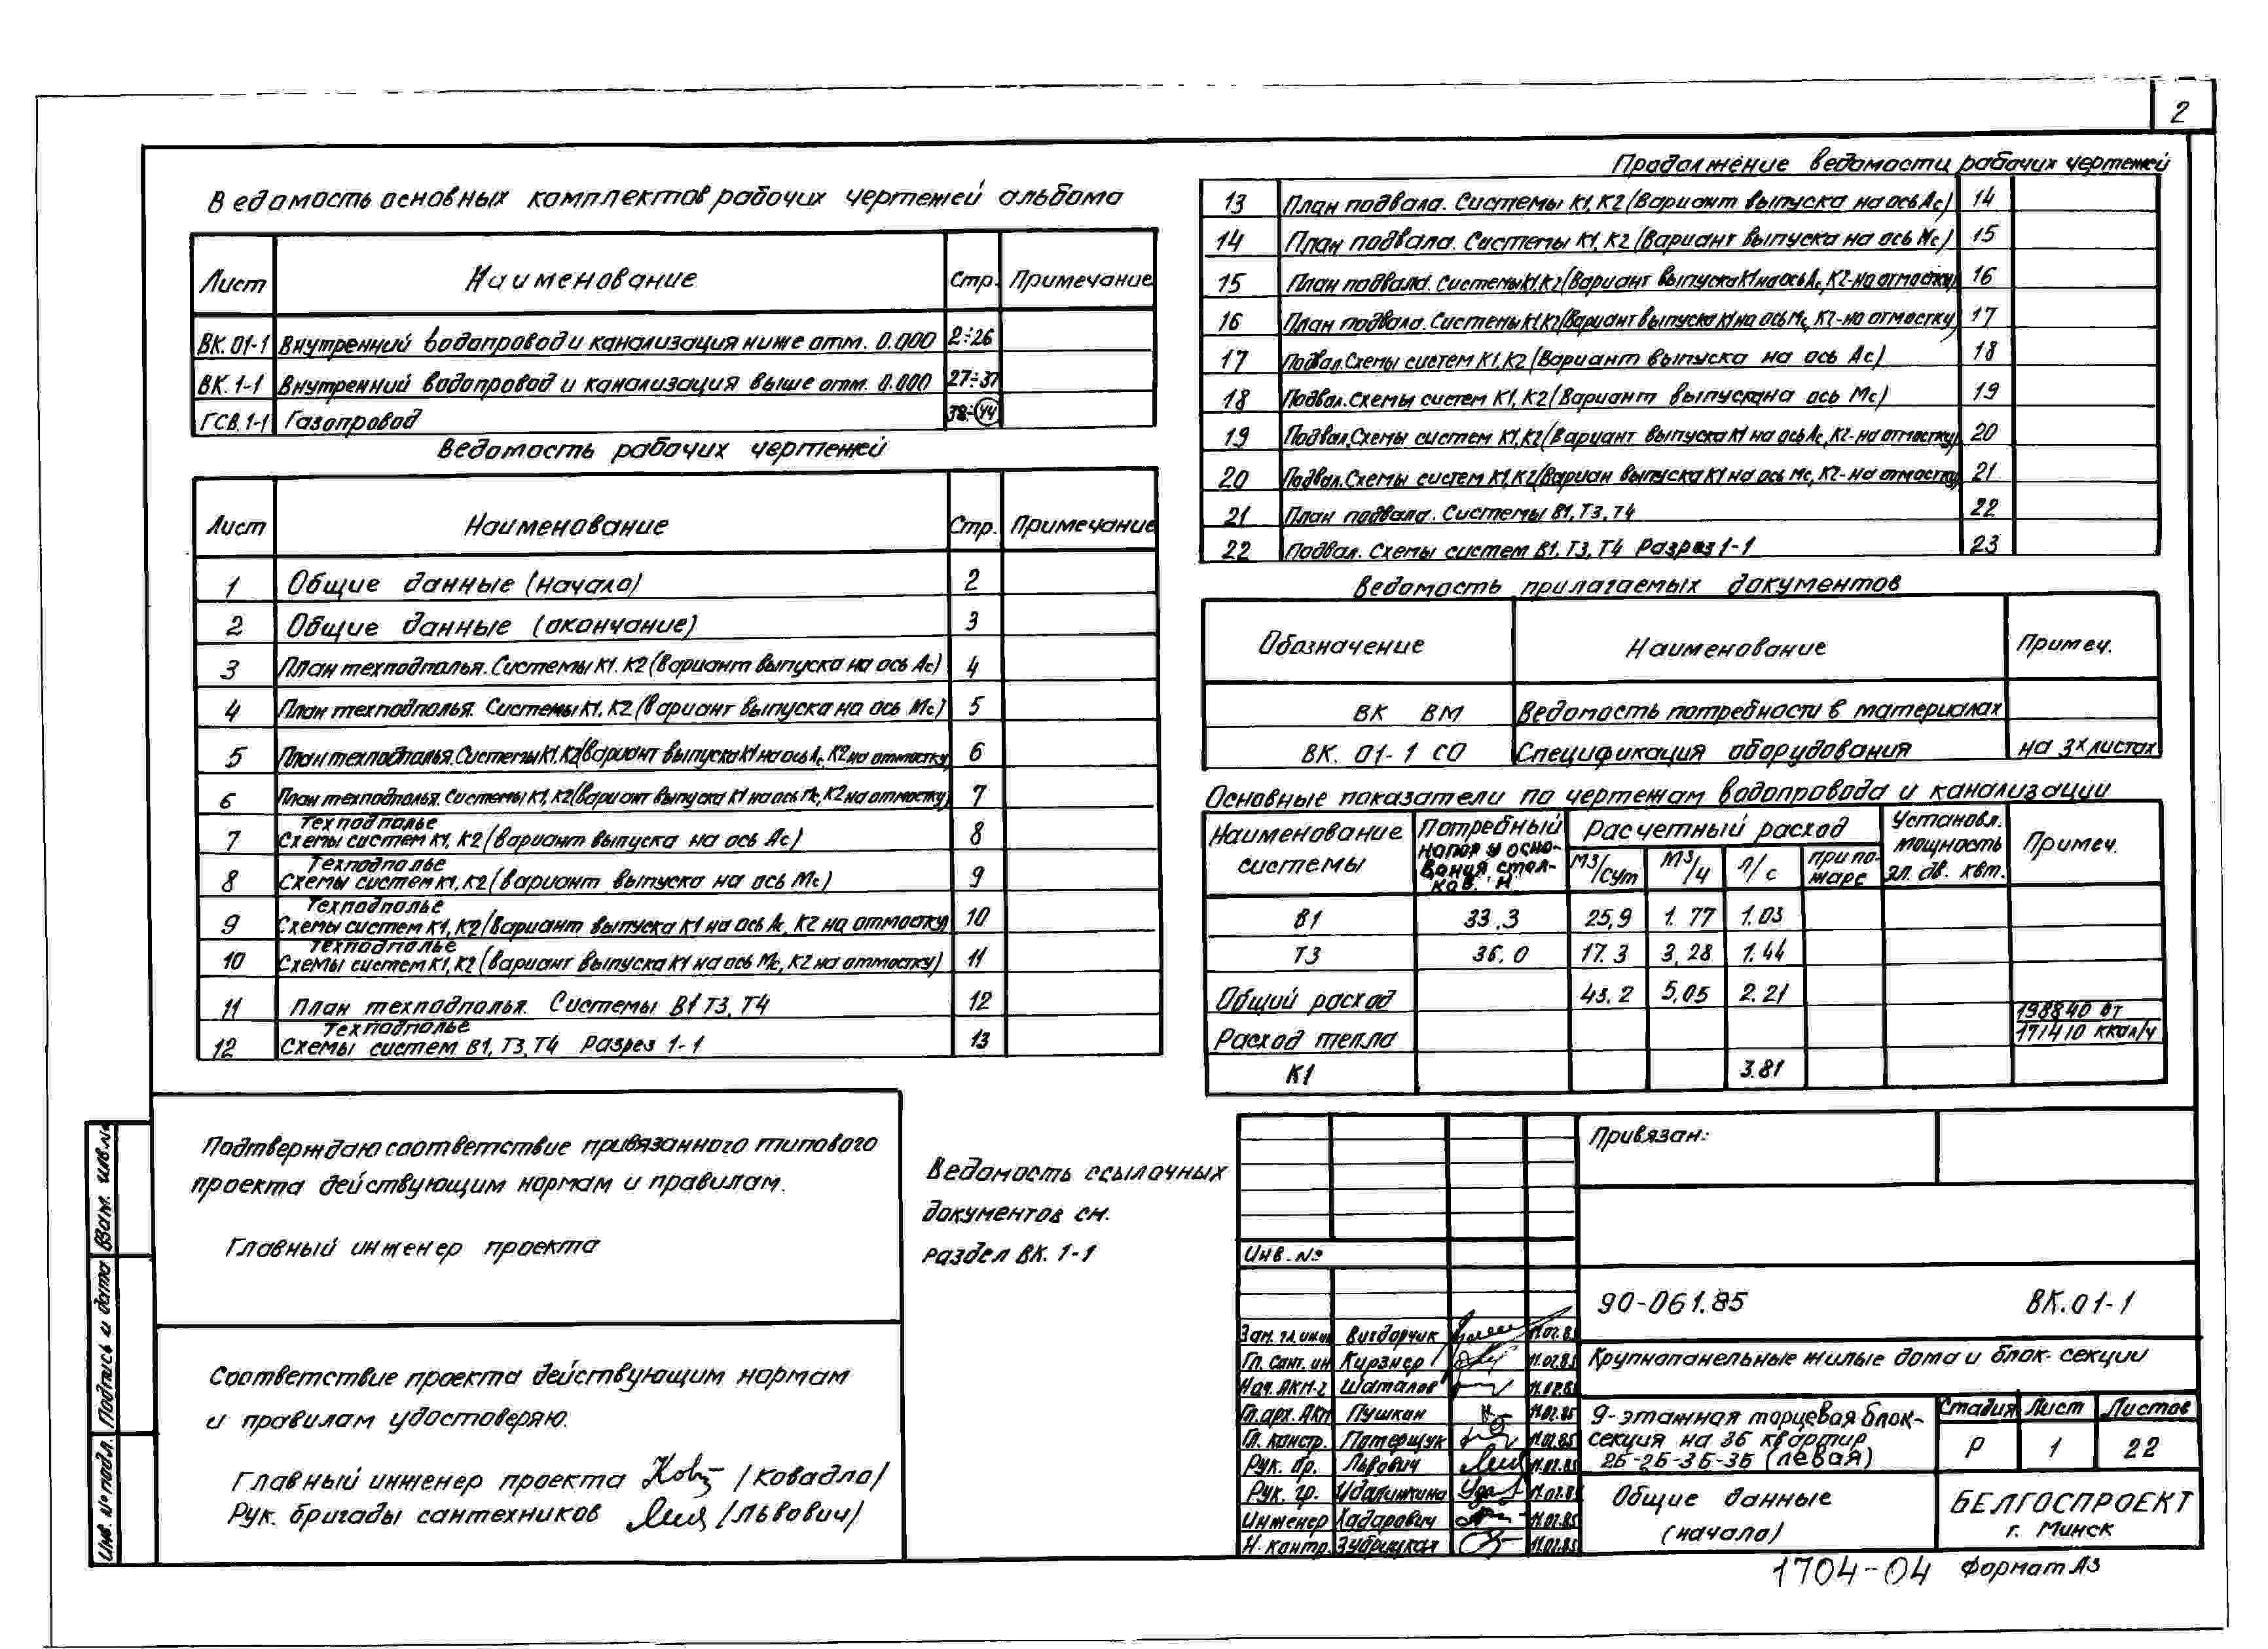 2
Ведомость основных комплектов рабочих чертежей альбома
Лист Наименование Стр. Примечание
ВК.01-1 Внутренний водопровод и канализация ниже отм. 0.000 2÷26
ВК.1-1 Внутренний водопровод и канализация выше отм. 0.000 27÷37
ГСВ.1-1 Газопровод 38-44
Ведомость рабочих чертежей
Лист Наименование Стр. Примечание
1 Общие данные (начало) 2
2 Общие данные (окончание) 3
3 План техподполья. Системы К1. К2 (вариант выпуска на ось Ас) 4
4 План техподполья. Системы К1, К2 (вариант выпуска на ось Мс) 5
5 План техподполья. Системы К1, К2 (вариант выпуска К1 на ось Ас, К2 на отмостку) 6
6 План техподполья. Системы К1, К2 (вариант выпуска К1 на ось Мс, К2 на отмостку) 7
Техподполье
7 Схемы систем К1, К2 (вариант выпуска на ось Ас) 8
Техподполье
8 Схемы систем К1, К2 (вариант выпуска на ось Мс) 9
Техподполье
9 Схемы систем К1, К2 (вариант выпуска К1 на ось Ас, К2 на отмостку) 10
Техподполье
10 Схемы систем К1, К2 (вариант выпуска К1 на ось Мс, К2 на отмостку) 11
11 План техподполья. Системы В1 Т3, Т4 12
Техподполье
12 Схемы систем В1, Т3, Т4 Разрез 1-1 13
Продолжение ведомости рабочих чертежей
13 План подвала. Системы К1, К2 (Вариант выпуска на ось Ас) 14
14 План подвала. Системы К1, К2 (Вариант выпуска на ось Мс) 15
15 План подвала. Системы К1, К2 (Вариант выпуска К1 на ось Ас, К2-на отмостку) 16
16 План подвала. Системы К1, К2 (Вариант выпуска К1 на ось Мс, К2-на отмостку) 17
17 Подвал. Схемы систем К1, К2 (Вариант выпуска на ось Ас) 18
18 Подвал. Схемы систем К1, К2 (Вариант выпуска на ось Мс) 19
19 Подвал. Схемы систем К1, К2 (Вариант выпуска К1 на ось Ас, К2-на отмостку) 20
20 Подвал. Схемы систем К1, К2 (Вариан выпуска К1 на ось Мс, К2-на отмостку) 21
21 План подвала. Системы В1, Т3, Т4 22
22 Подвал. Схемы систем В1, Т3, Т4 Разрез 1-1 23
Ведомость прилагаемых документов
Обозначение Наименование Примеч.
ВК ВМ Ведомость потребности в материалах
ВК. 01-1 СО Спецификация оборудования на 3х листах
Основные показатели по чертежам водопровода и канализации
Наименование системы Потребный напор у осно-вания стоя-ков. М Расчетный расход Установл. мощность эл. дв. квт. Примеч.
М3/сут М3/ч Л/с При по-жаре
В1 33.3 25,9 1.77 1.03
Т3 36.0 17.3 3,28 1.44
Общий расход 43.2 5,05 2.21
Расход тепла 198840 Вт
171410 ккал/ч
К1 3.81
Подтверждаю соответствие привязанного типового
проекта действующим нормам и правилам.
Главный инженер проекта
Соответствие проекта действующим нормам
и правилам удостоверяю.
Главный инженер проекта /Ковадло/
Рук. бригады сантехников /Львович/
Ведомость ссылочных
документов см.
раздел ВК. 1-1
Взам. инв.№
Подпись и дата
Инв. № подл.
Привязан:
Инв. №
90-061.85 ВК.01-1
Зам. гл. инж Вигдорчик 11.02.85
Гл. сант. ин Кирзнер 11.02.85
Нач. АКМ-2 Шаталов 11.02.85
Гл. арх. АКМ Пушкин 11.02.85
Гл. констр. Патерщук 11.02.85
Рук. бр. Львович 11.02.85
Рук. гр. 11.02.85
Инженер Хадарович 11.02.85
Н. контр. Зубрицкая 11.02.85
Крупнопанельные жилые дома и блок-секции
9-этажная торцевая блок-
секция на 36 квартир
2Б-2Б-3Б-3Б (левая)
Стадия Лист Листов
Р 1 22
Общие данные
(начало)
БЕЛГОСПРОЕКТ
г. Минск
1704-04 Формат А3